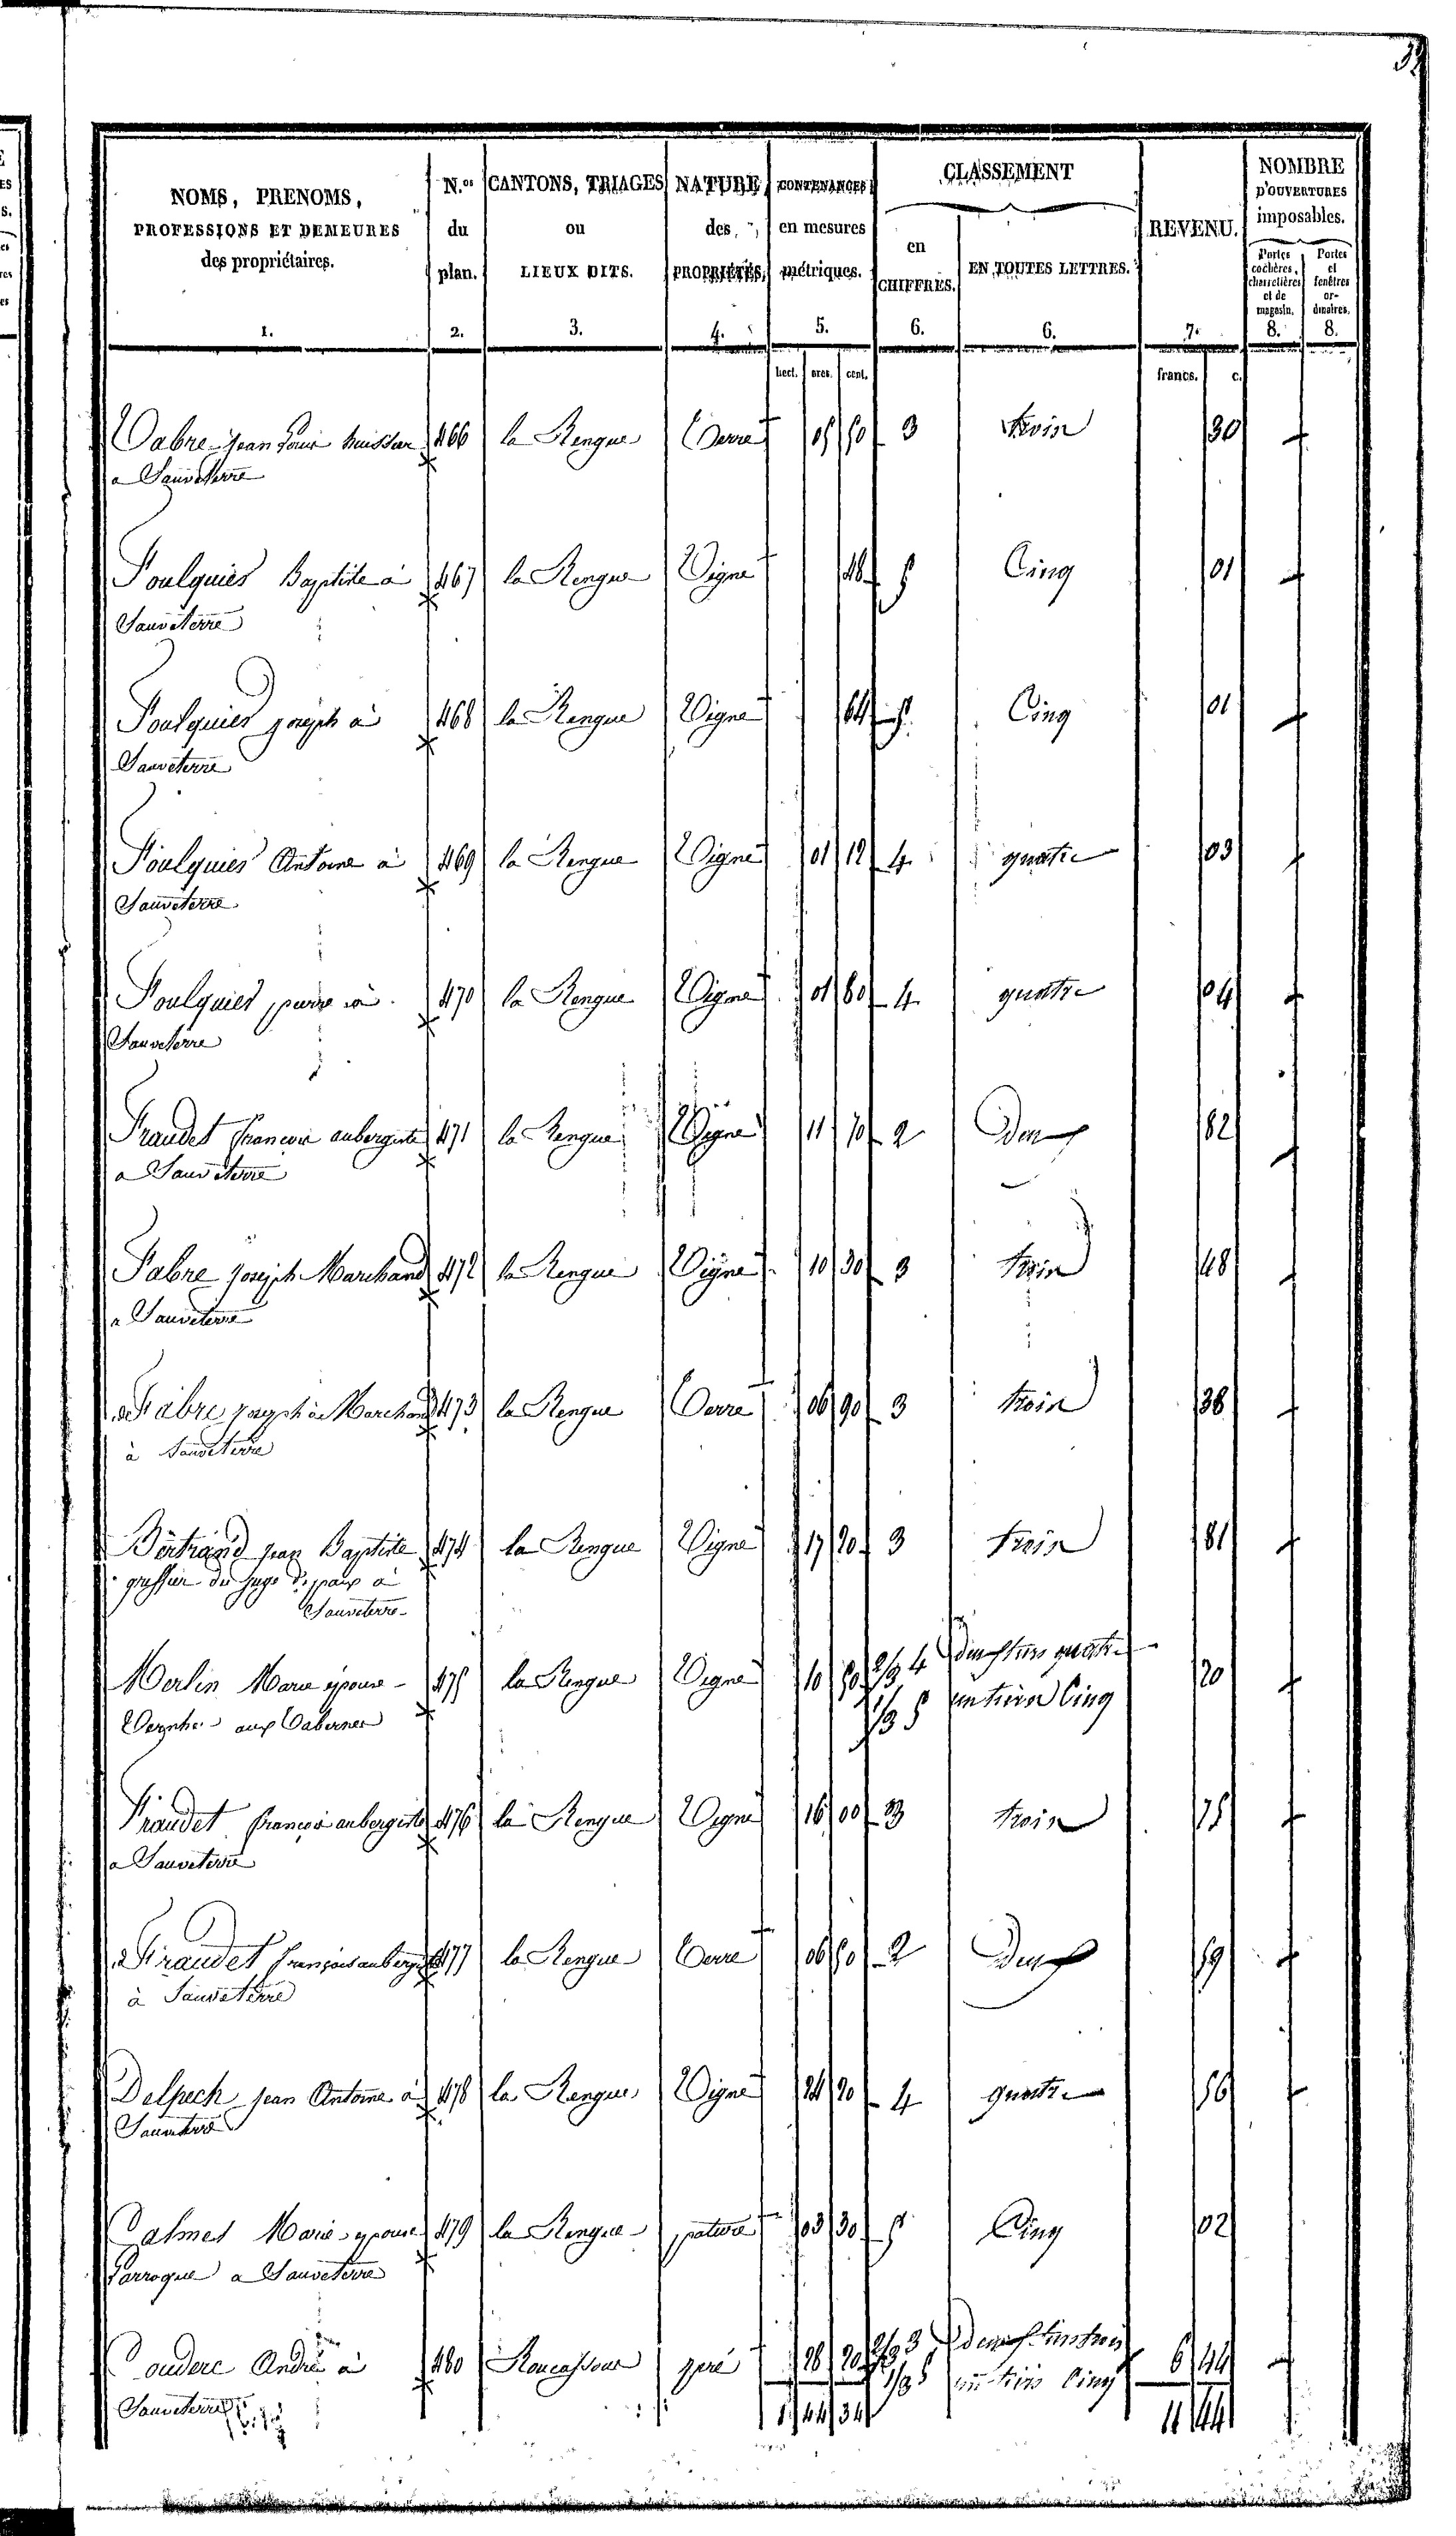 32
NOMS, PRENOMS, PROFESSIONS ET DEMEURES des propriétaires. 1.
N.os du plan. 2.
CANTONS, TRIAGES ou LIEUX DITS. 3.
NATURE des PROPRIÉTÉS. 4.
CONTENANCES en mesures métriques. 5.
CLASSEMENT
en CHIFFRES. 6.
EN TOUTES LETTRES. 6.
REVENU. 7.
NOMBRE D'OUVERTURES imposables.
Portes cochères, charretières et de magasin. 8.
Portes et fenêtres ordinaires. 8.
hect. ares. cent. francs. c.
Vabre jean Louis huissier 466 la Rengue Terre 05 50 3 trois 30
a Sauveterre
Foulquier Baptiste à 467 la Rengue Vigne 48 5 Cinq 01
Sauveterre
Foulquier joseph à 468 la Rengue Vigne 64 5 Cinq 01
Sauveterre
Foulquier Antoine à 469 la Rengue Vigne 01 12 4 quatre 03
Sauveterre
Foulquier pierre à 470 la Rengue Vigne 01 60 4 quatre 04
Sauveterre
Fraudet françois aubergiste 471 la Rengue Vigne 11 70 2 Deux 82
a Sauveterre
Fabre joseph Marchand 472 la Rengue Vigne 10 30 3 trois 48
a Sauveterre
Fabre joseph Marchand 473 la Rengue Terre 06 90 3 trois 38
à Sauveterre
Bertrand jean Baptiste 474 la Rengue Vigne 17 20 3 trois 81
greffier du juge de paix à
Sauveterre
Merlin Marie épouse 475 la Rengue Vigne 10 50 2/3 4 Deux tiers quatre 20
Vernhe aux Cabernes 1/3 5 un tiers Cinq
Fraudet françois aubergiste 476 la Rengue Vigne 16 00 3 trois 75
a Sauveterre
Fraudet françois aubergiste 477 la Rengue Terre 06 50 2 Deux 59
à Sauveterre
Delpech jean Antoine à 478 la Rengue Vigne 24 20 4 quatre 56
Sauveterre
Calmes Marie epouse 479 la Rengue pature 03 30 5 Cinq 02
Larroque a Sauveterre
Couderc André à 480 pré 28 20 2/3 3 Deux tiers trois 6 44
Sauveterre 1/3 5 un tiers Cinq
1 44 34 11 44